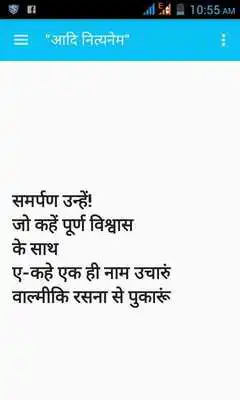 10:55 AM
"आदि नित्यनेम"
समर्पण उन्हें!
जो कहें पूर्ण विश्वास
के साथ
ए-कहे एक ही नाम उचारुं
वाल्मीकि रसना से पुकारूं